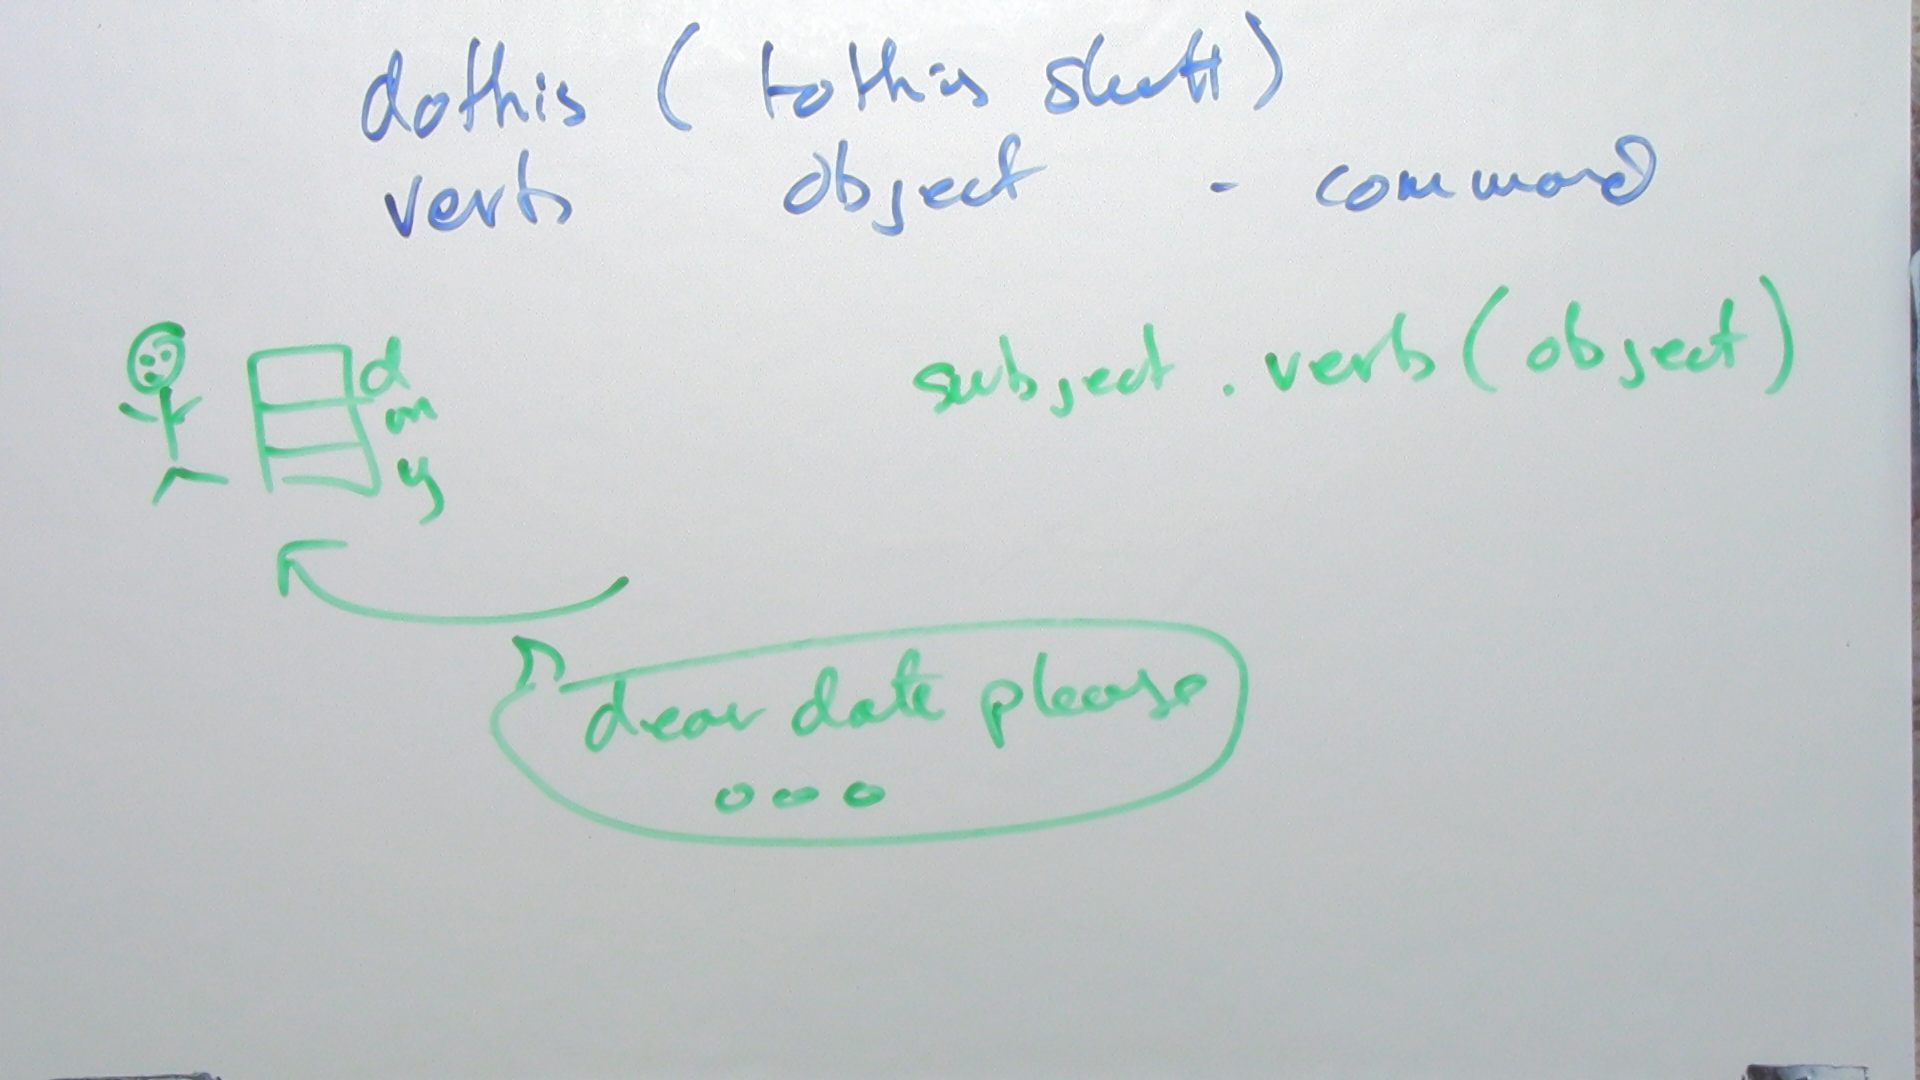 dothis ( tothis stuff )
verb object - command
subject . verb ( object )
d
m
y
dear date please